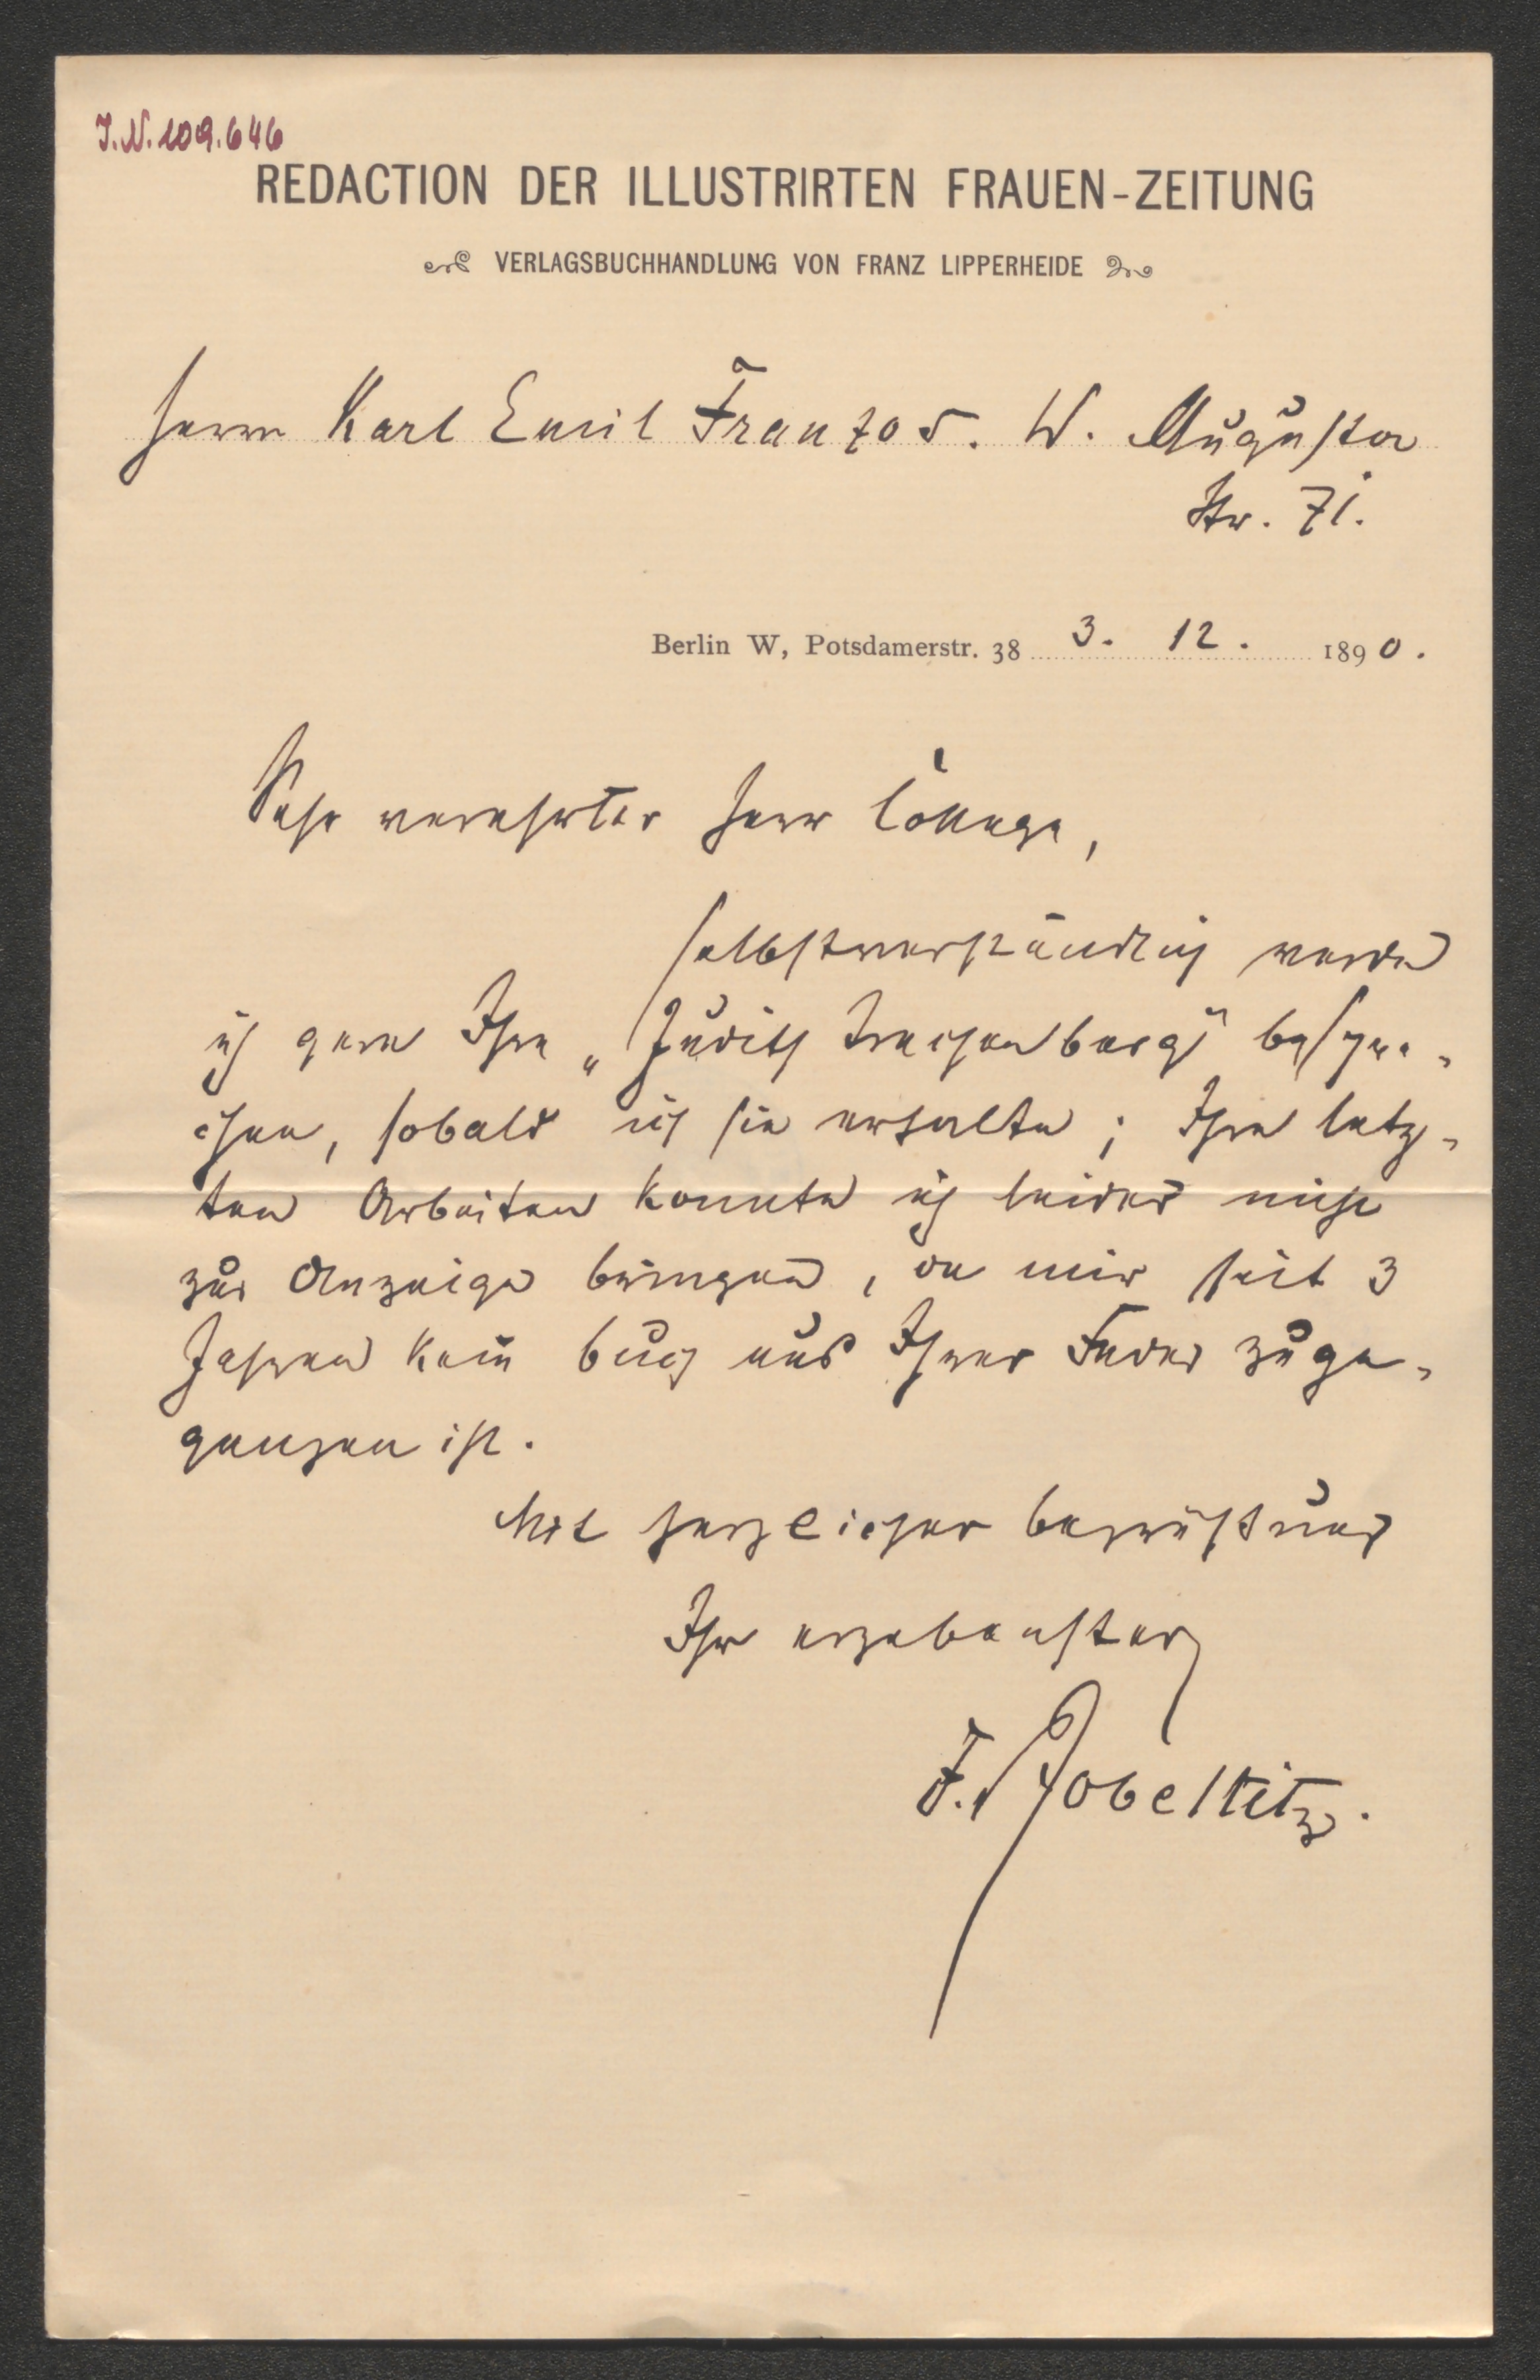 I.N. 109.646
REDACTION DER ILLUSTRIRTEN FRAUEN-ZEITUNG
VERLAGSBUCHHANDLUNG VON FRANZ LIPPERHEIDE
Herrn Karl Emil Franzos. W. Augusta
Str. 71.
Berlin W, Potsdamerstr. 38 3. 12. 1890.
Sehr verehrter Herr College,
selbstverständlich werde
ich gern Ihre „Judith Trachtenberg" bespre-
chen, sobald ich sie erhalte; Ihre letz-
ten Arbeiten konnte ich leider nicht
zur Anzeige bringen, da mir seit 3
Jahren kein Buch aus Ihrer Feder zuge-
gangen ist.
Mit herzlicher Begrüßung
Ihr ergebenster
F. v Zobeltitz.